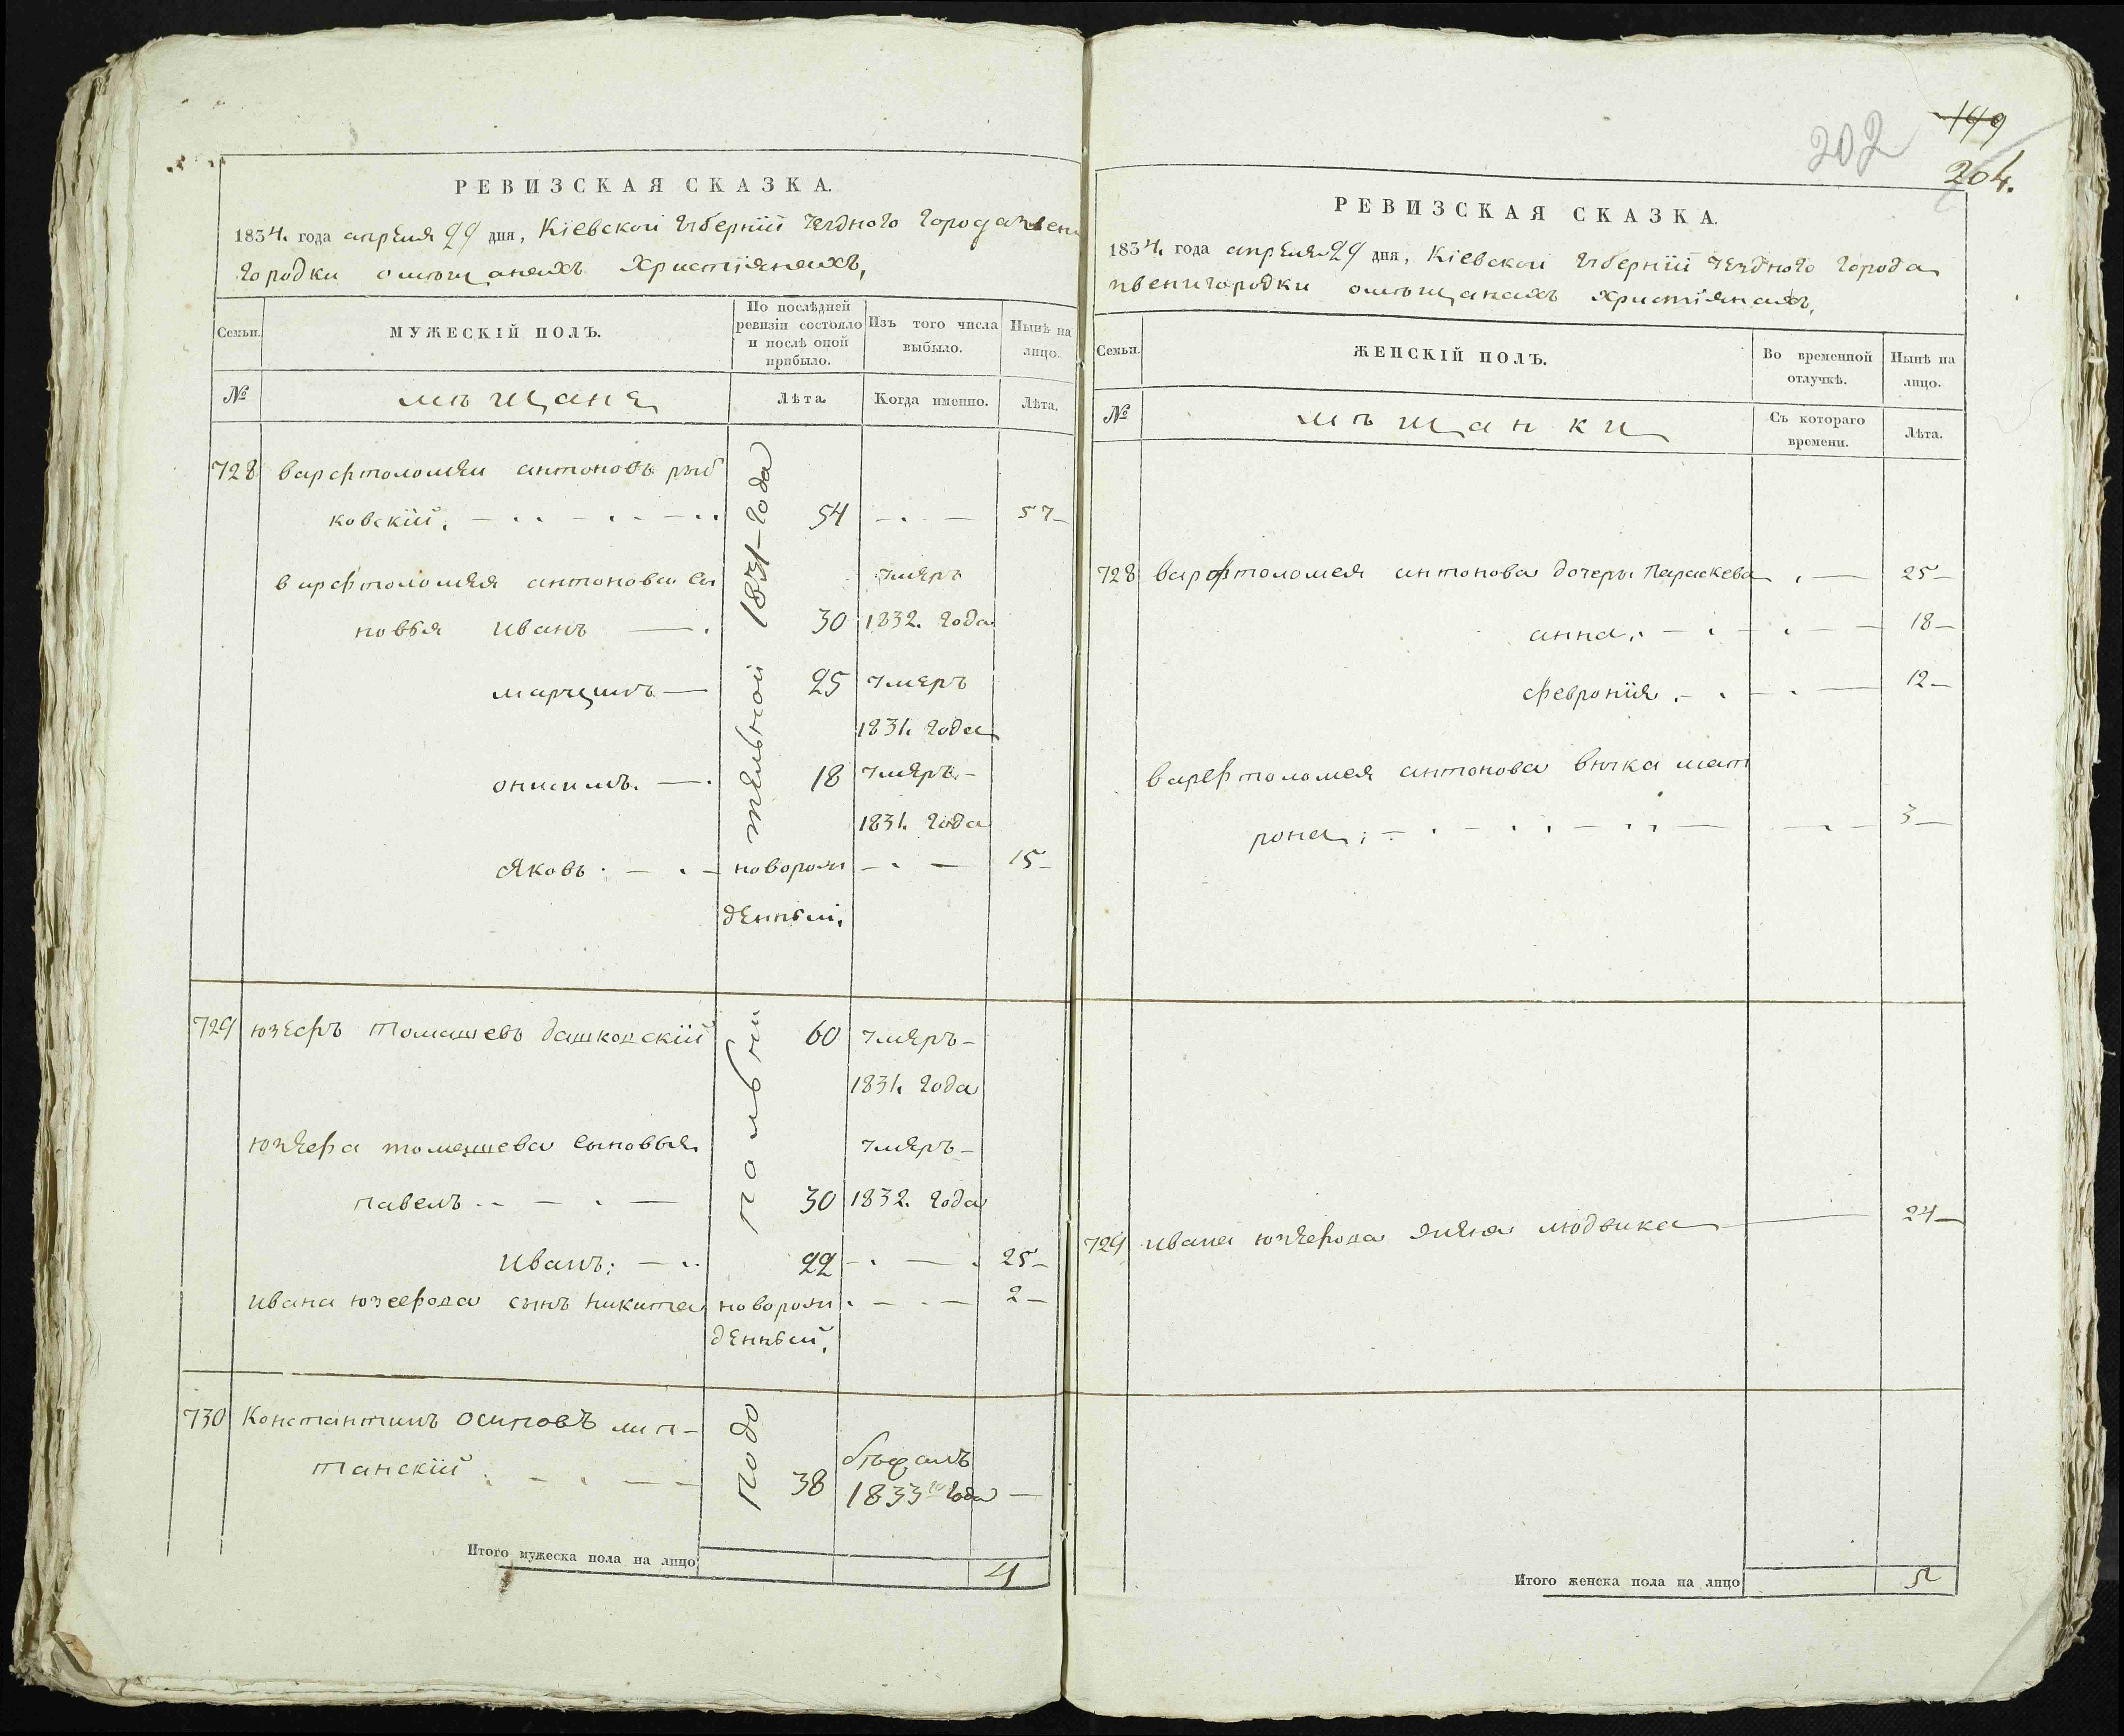 РЕВИЗСКАЯ СКАЗКА.
1834. года апреля 29 дня, Кіевской губерніи уездного города Звени
городки омещанахъ христіянахъ,
Семьи.
МУЖЕСКІЙ ПОЛЪ.
По послѣдней ревизіи состояло и послѣ оной прибыло.
Изъ того числа выбыло.
Нынѣ на лицо.
№
мѣщане
Лѣта
Когда именно.
Лѣта.
подополнительной 1831 года
728 варфтоломей антоновъ рыб
ковскій. 54 57
варфтоломея антонова сы умеръ
новья иванъ 30 1832. года
марцинъ 25 умеръ
1831. года
онисимъ. 18 умеръ
1831. года
Яковъ новорож 15
денный.
729 юзефъ томашевъ дашковскій 60 умеръ
1831. года
юзефа томашева сыновья умеръ
павелъ 30 1832. года
иванъ: 22 25
ивана юзефова сынъ никита новорож 2
денный.
730 Константинъ осиповъ лип-
танскій 38 1833 го года
Итого мужеска пола на лицо 4
202
199
204.
РЕВИЗСКАЯ СКАЗКА.
1834. года апреля 29 дня, Кіевской губерніи уездного города
звенигородки омѣщанахъ христіянахъ,
Семьи.
ЖЕНСКІЙ ПОЛЪ.
Во временной отлучкѣ.
Нынѣ на лицо.
№
мѣщанки
Съ котораго времени.
Лѣта.
728 варфтоломея антонова дочери Параскева 25
анна. 18
феврония 12
варфтоломея антонова внука мат
рона 3
729 ивана юзефова жена людвика 24
Итого женска пола на лицо 5